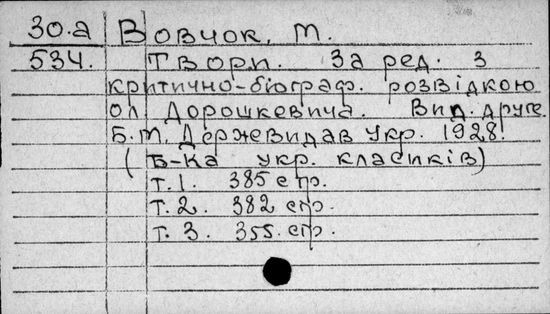 30.а Вовчок, М.
534. Твори. За ред. з
критично-біограф. розвідкою
Ол Дорошкевича. Вид. друге.
Б.м. Державидав Укр. 1928.
(Б-ка укр. класиків)
т. 1. 385 стр.
т. 2. 382 стр.
т. 3. 355 стр.